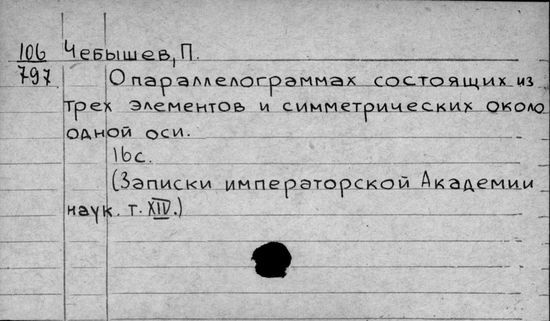 106 Чебышев, П.
797 О параллелограммах состоящих из
трех элементов и симметрических около
одной оси.
16с.
(Записки императорской Академии
наук. т. XIV.)